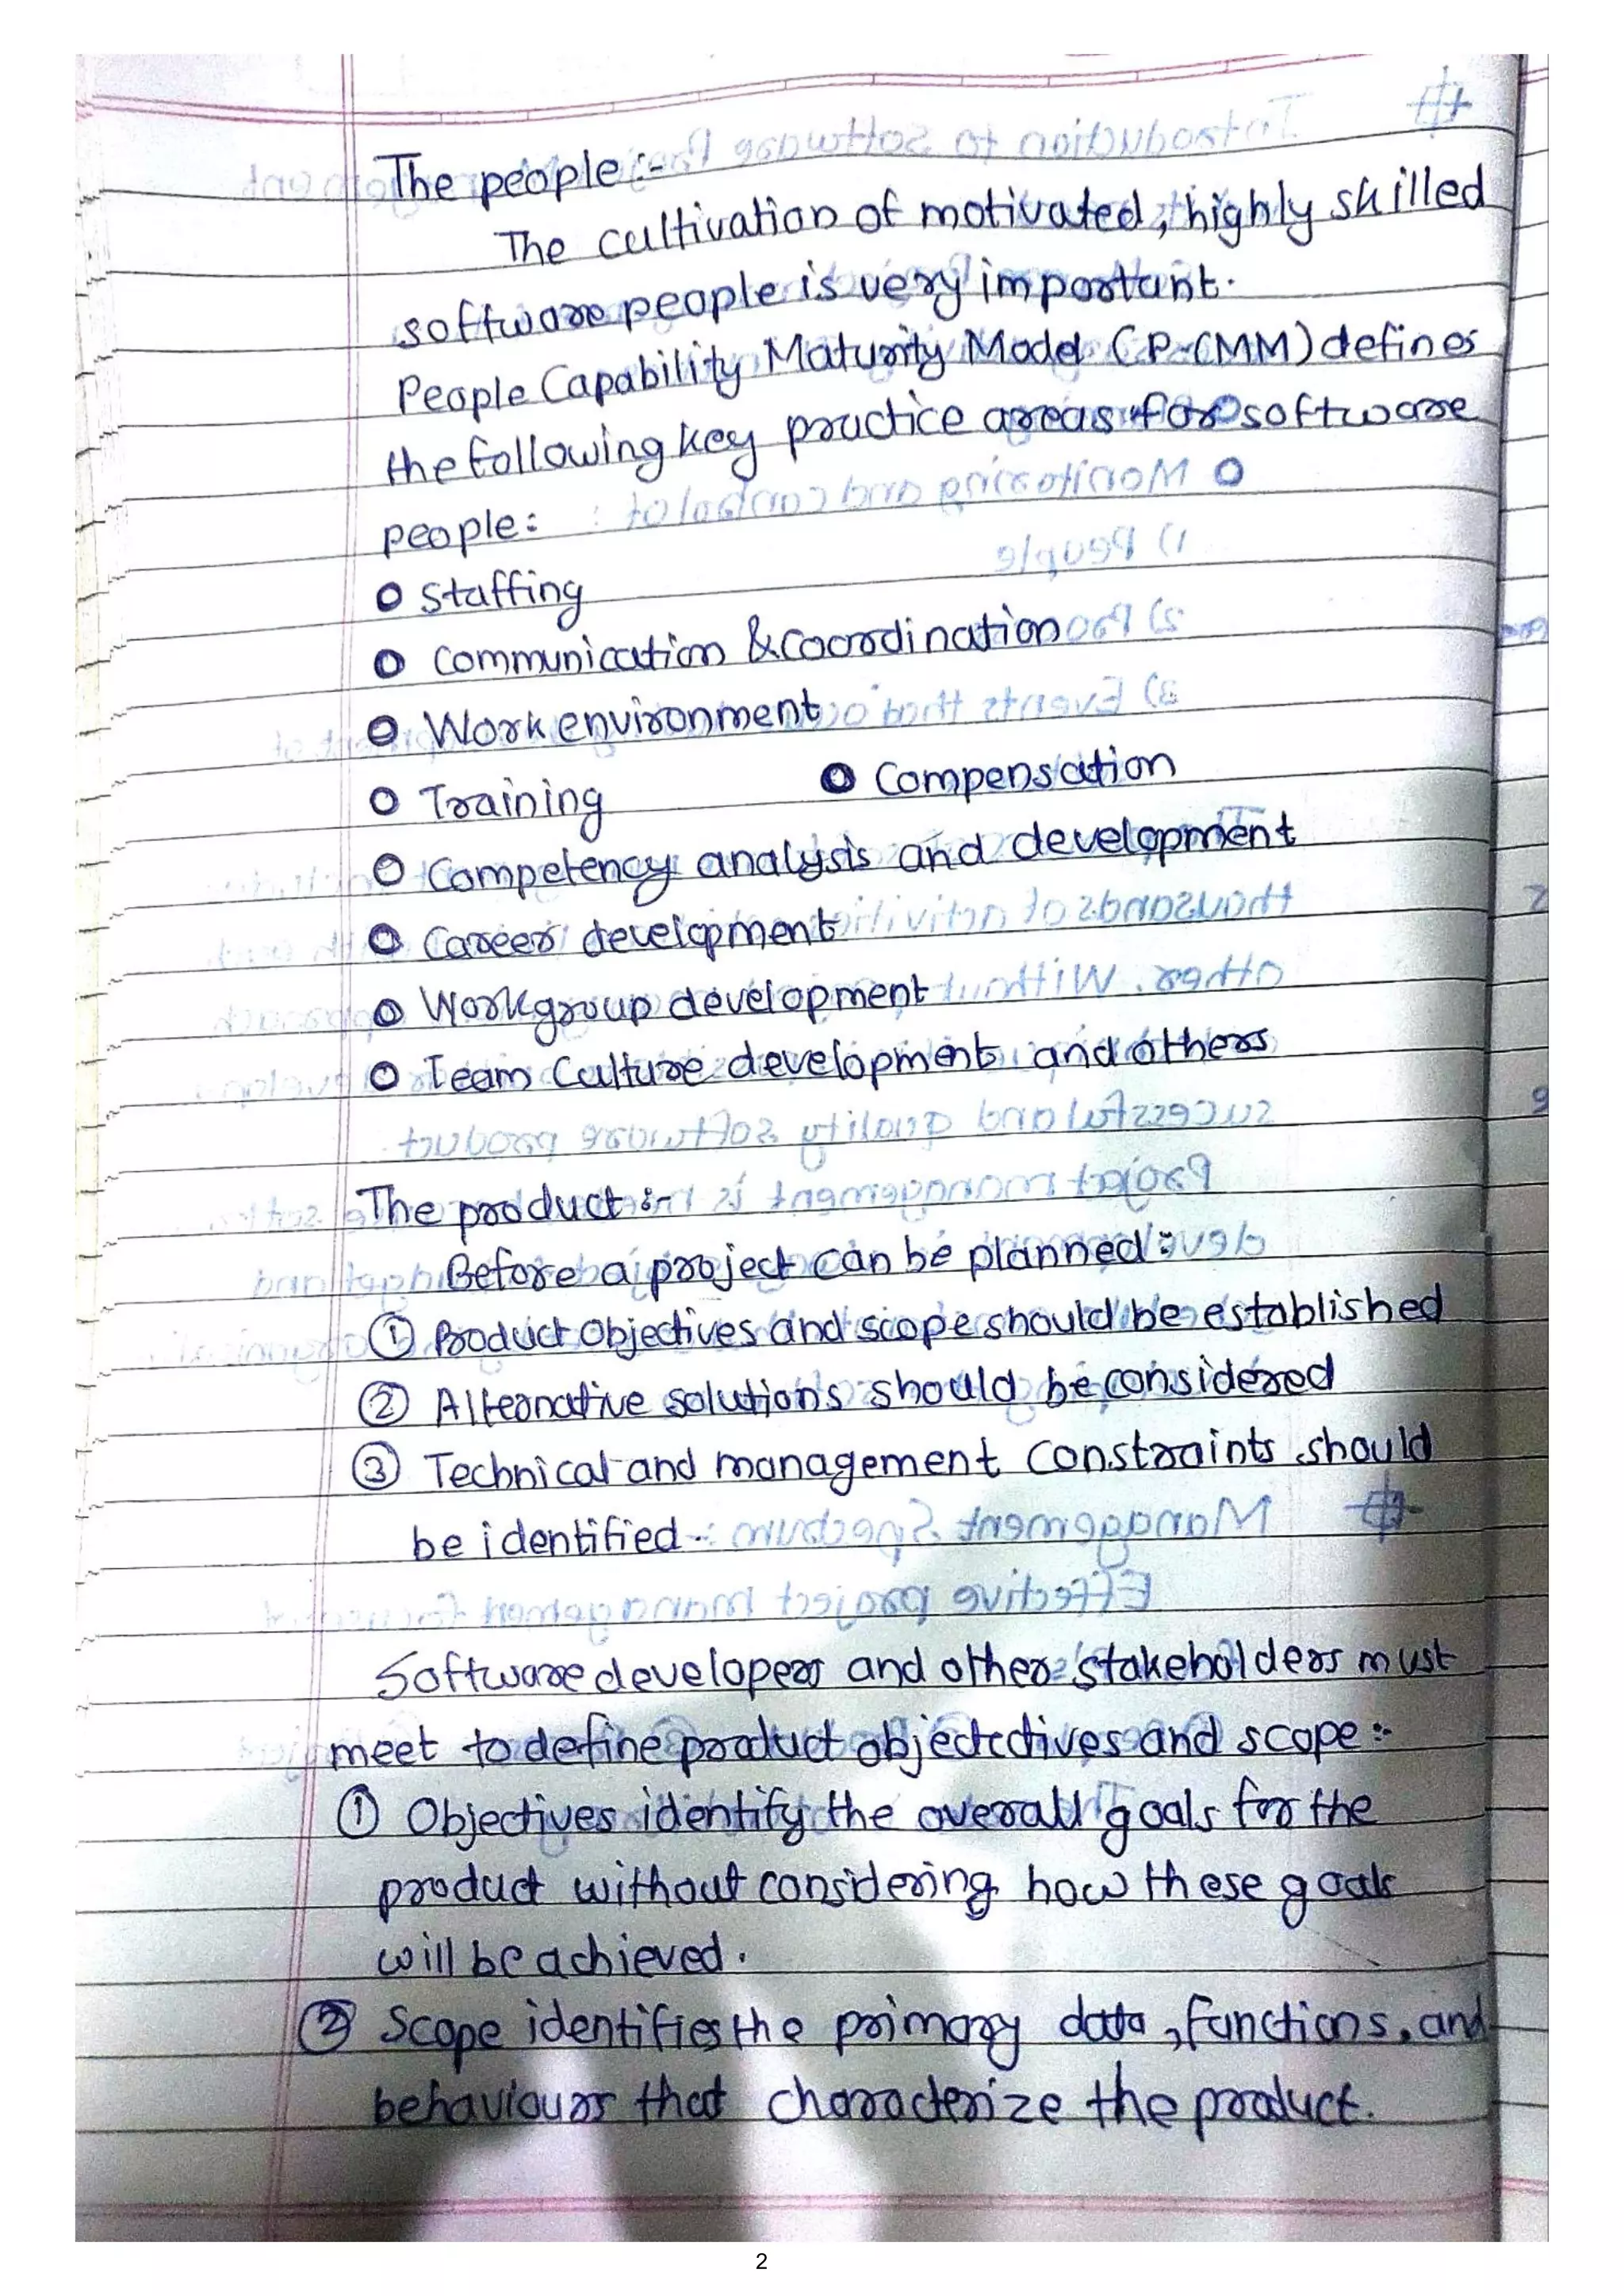 The people :-
The cultivation of motivated, highly skilled
software people is very important.
People Capability Maturity Model (P-CMM) defines
the following key practice areas for software
people:
o Staffing
o Communication & coordination
o Work environment
o Training o Compensation
o Competency analysis and development
o Career development
o Workgroup development
o Team Culture development and others
The product :-
Before a project can be planned :
① Product objectives and scope should be established
② Alternative solutions should be considered
③ Technical and management constraints should
be identified
Software developers and other stakeholders must
meet to define product objectctives and scope :-
① Objectives identify the overall goals for the
product without considering how these goals
will be achieved.
② Scope identifies the primary data, functions, and
behaviours that characterize the product.
2